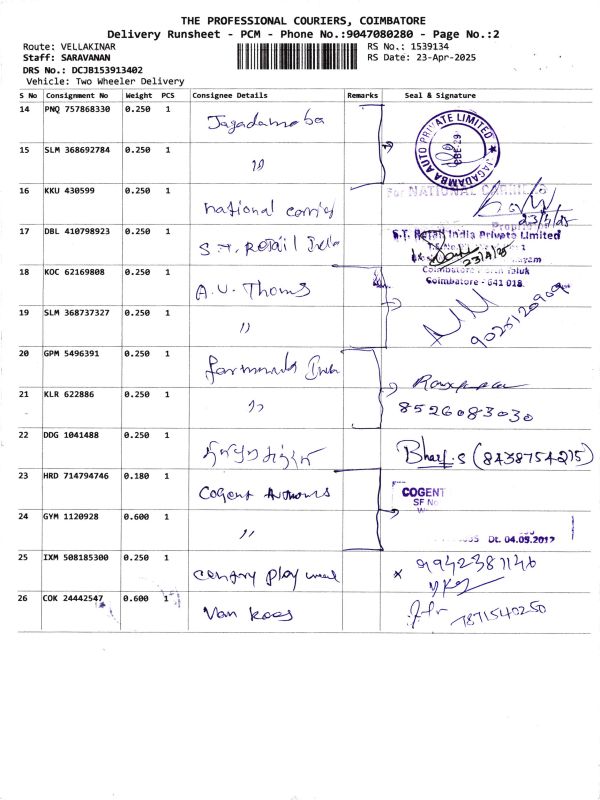 THE PROFESSIONAL COURIERS, COIMBATORE
Delivery Runsheet - PCM - Phone No.:9047080280 - Page No.:2
Route: VELLAKINAR
RS No.: 1539134
Staff: SARAVANAN
RS Date: 23-Apr-2025
DRS No.: DCJB153913402
Vehicle: Two Wheeler Delivery
S No Consignment No Weight PCS Consignee Details Remarks Seal & Signature
14 PNQ 757868330 0.250 1 Jagadamba
JAGADAMBA AUTO PRIVATE LIMITED
CBE-29
15 SLM 368692784 0.250 1 "
16 KKU 430599 0.250 1 national
For NATIONAL
23/4/25
17 DBL 410798923 0.250 1 S.T. Retail India
S.T. Retail India Private Limited
23/4/25
Coimbatore - 641 018.
18 KOC 62169808 0.250 1 A.V. Thoms
19 SLM 368737327 0.250 1 "
20 GPM 5496391 0.250 1
21 KLR 622886 0.250 1 "
8526083030
22 DDG 1041488 0.250 1
(8438754215)
23 HRD 714794746 0.180 1 Cogent
COGENT
SF No
24 GYM 1120928 0.600 1 "
Dt. 04.05.2012
25 IXM 508185300 0.250 1 century ply
x 9942381146
26 COK 24442547 0.600 1 Van
7871540250